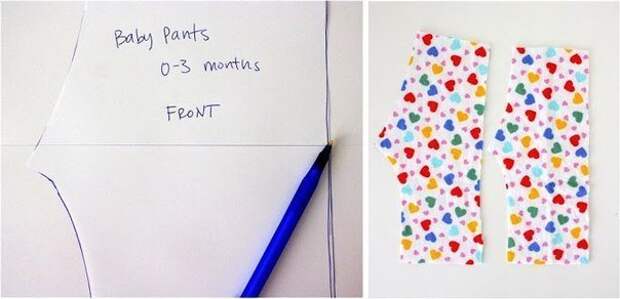 Baby Pants
0-3 months
FRONT